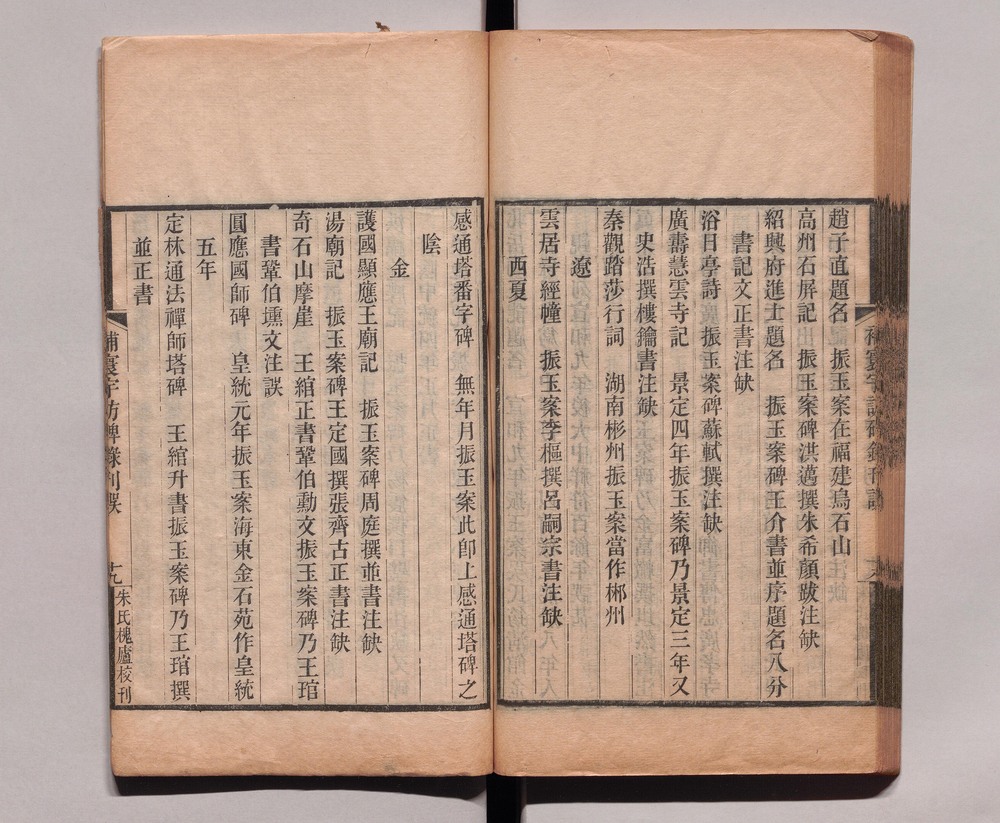 趙子直題名 振玉案在福建烏石山
高州石屏記 振玉案碑洪邁撰朱希顏跋注缺
紹興府進士題名 振玉案碑王介書並序題名八分
書記文正書注缺
浴日亭詩 振玉案碑蘇軾撰注缺
廣壽慧雲寺記 景定四年振玉案碑乃景定三年又
史浩撰樓鑰書注缺
秦觀踏莎行詞 湖南彬州振玉案當作郴州
遼
雲居寺經幢 振玉案李樞撰呂嗣宗書注缺
西夏
感通塔番字碑 無年月振玉案此卽上感通塔碑之
陰
金
護國顯應王廟記 振玉案碑周庭撰並書注缺
湯廟記 振玉案碑王定國撰張齊古正書注缺
奇石山摩崖 王綰正書鞏伯勳文振玉案碑乃王琯
書鞏伯壎文注誤
圓應國師碑 皇統元年振玉案海東金石苑作皇統
五年
定林通法禪師塔碑 王綰升書振玉案碑乃王琯撰
並正書
補寰宇訪碑錄刊誤
十九
朱氏槐廬校刊